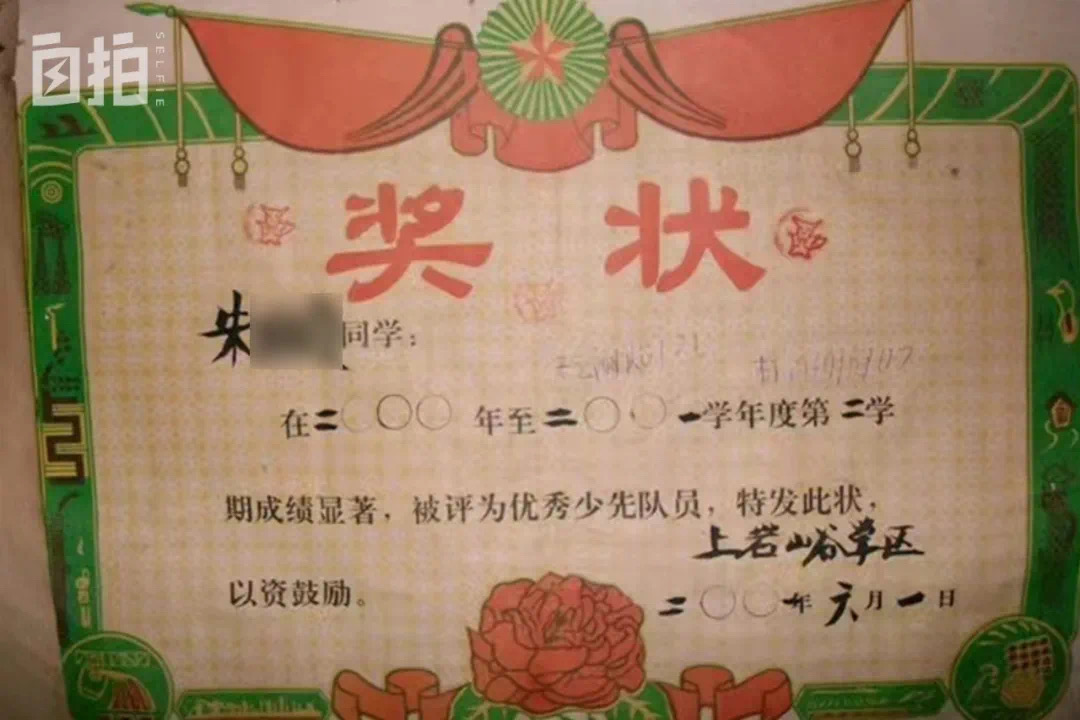 自拍 SELFIE
奖状
朱 同学：
在二〇〇〇年至二〇〇一学年度第二学
期成绩显著，被评为优秀少先队员，特发此状，
上岩山谷学区
以资鼓励。
二〇〇一年六月一日